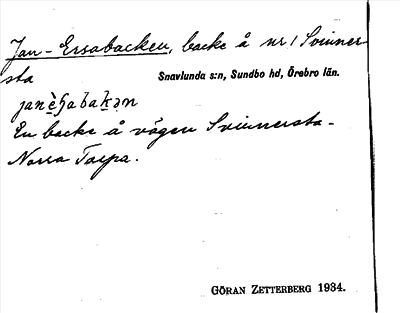 Jan-Ersabacken, backe å nr 1 Svinner-
sta
Snavlunda s:n, Sundbo hd, Örebro län.
En backe å vägen Svinnersta-
Norra Torpa.
GÖRAN ZETTERBERG 1934.